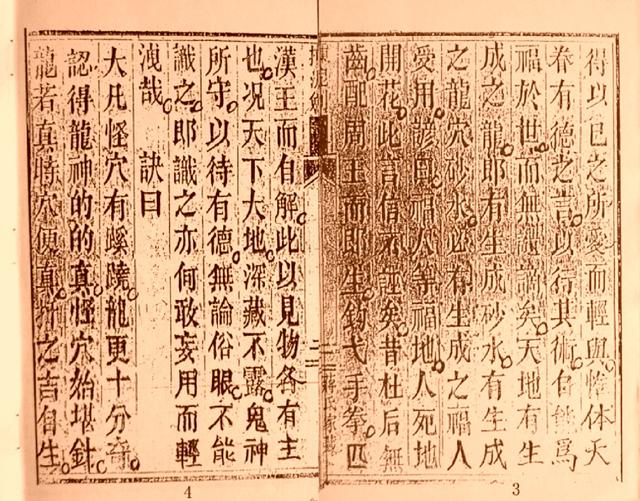 得以已之所愛而輕與惟体天
眷有德之者以行其術自能為
福於世而無譴謫矣天地有生
成之龍即有生成砂水有生成
之龍穴砂水必有生成之福人
愛用諺曰福人等福地人死地
開花此昔信不誣矣昔杜后無
齒配周王而即生鈎弋手拳匹
3
漢王而自解此以見物各有主
也况天下大地深藏不露鬼神
所守以待有德無論俗眼不能
識之即識之亦何敢妄用而輕
洩哉 訣曰
大凡怪穴有蹊蹺龍更十分奇
認得龍神的的真怪穴始堪針
龍若真時穴便真扦之吉自生
4